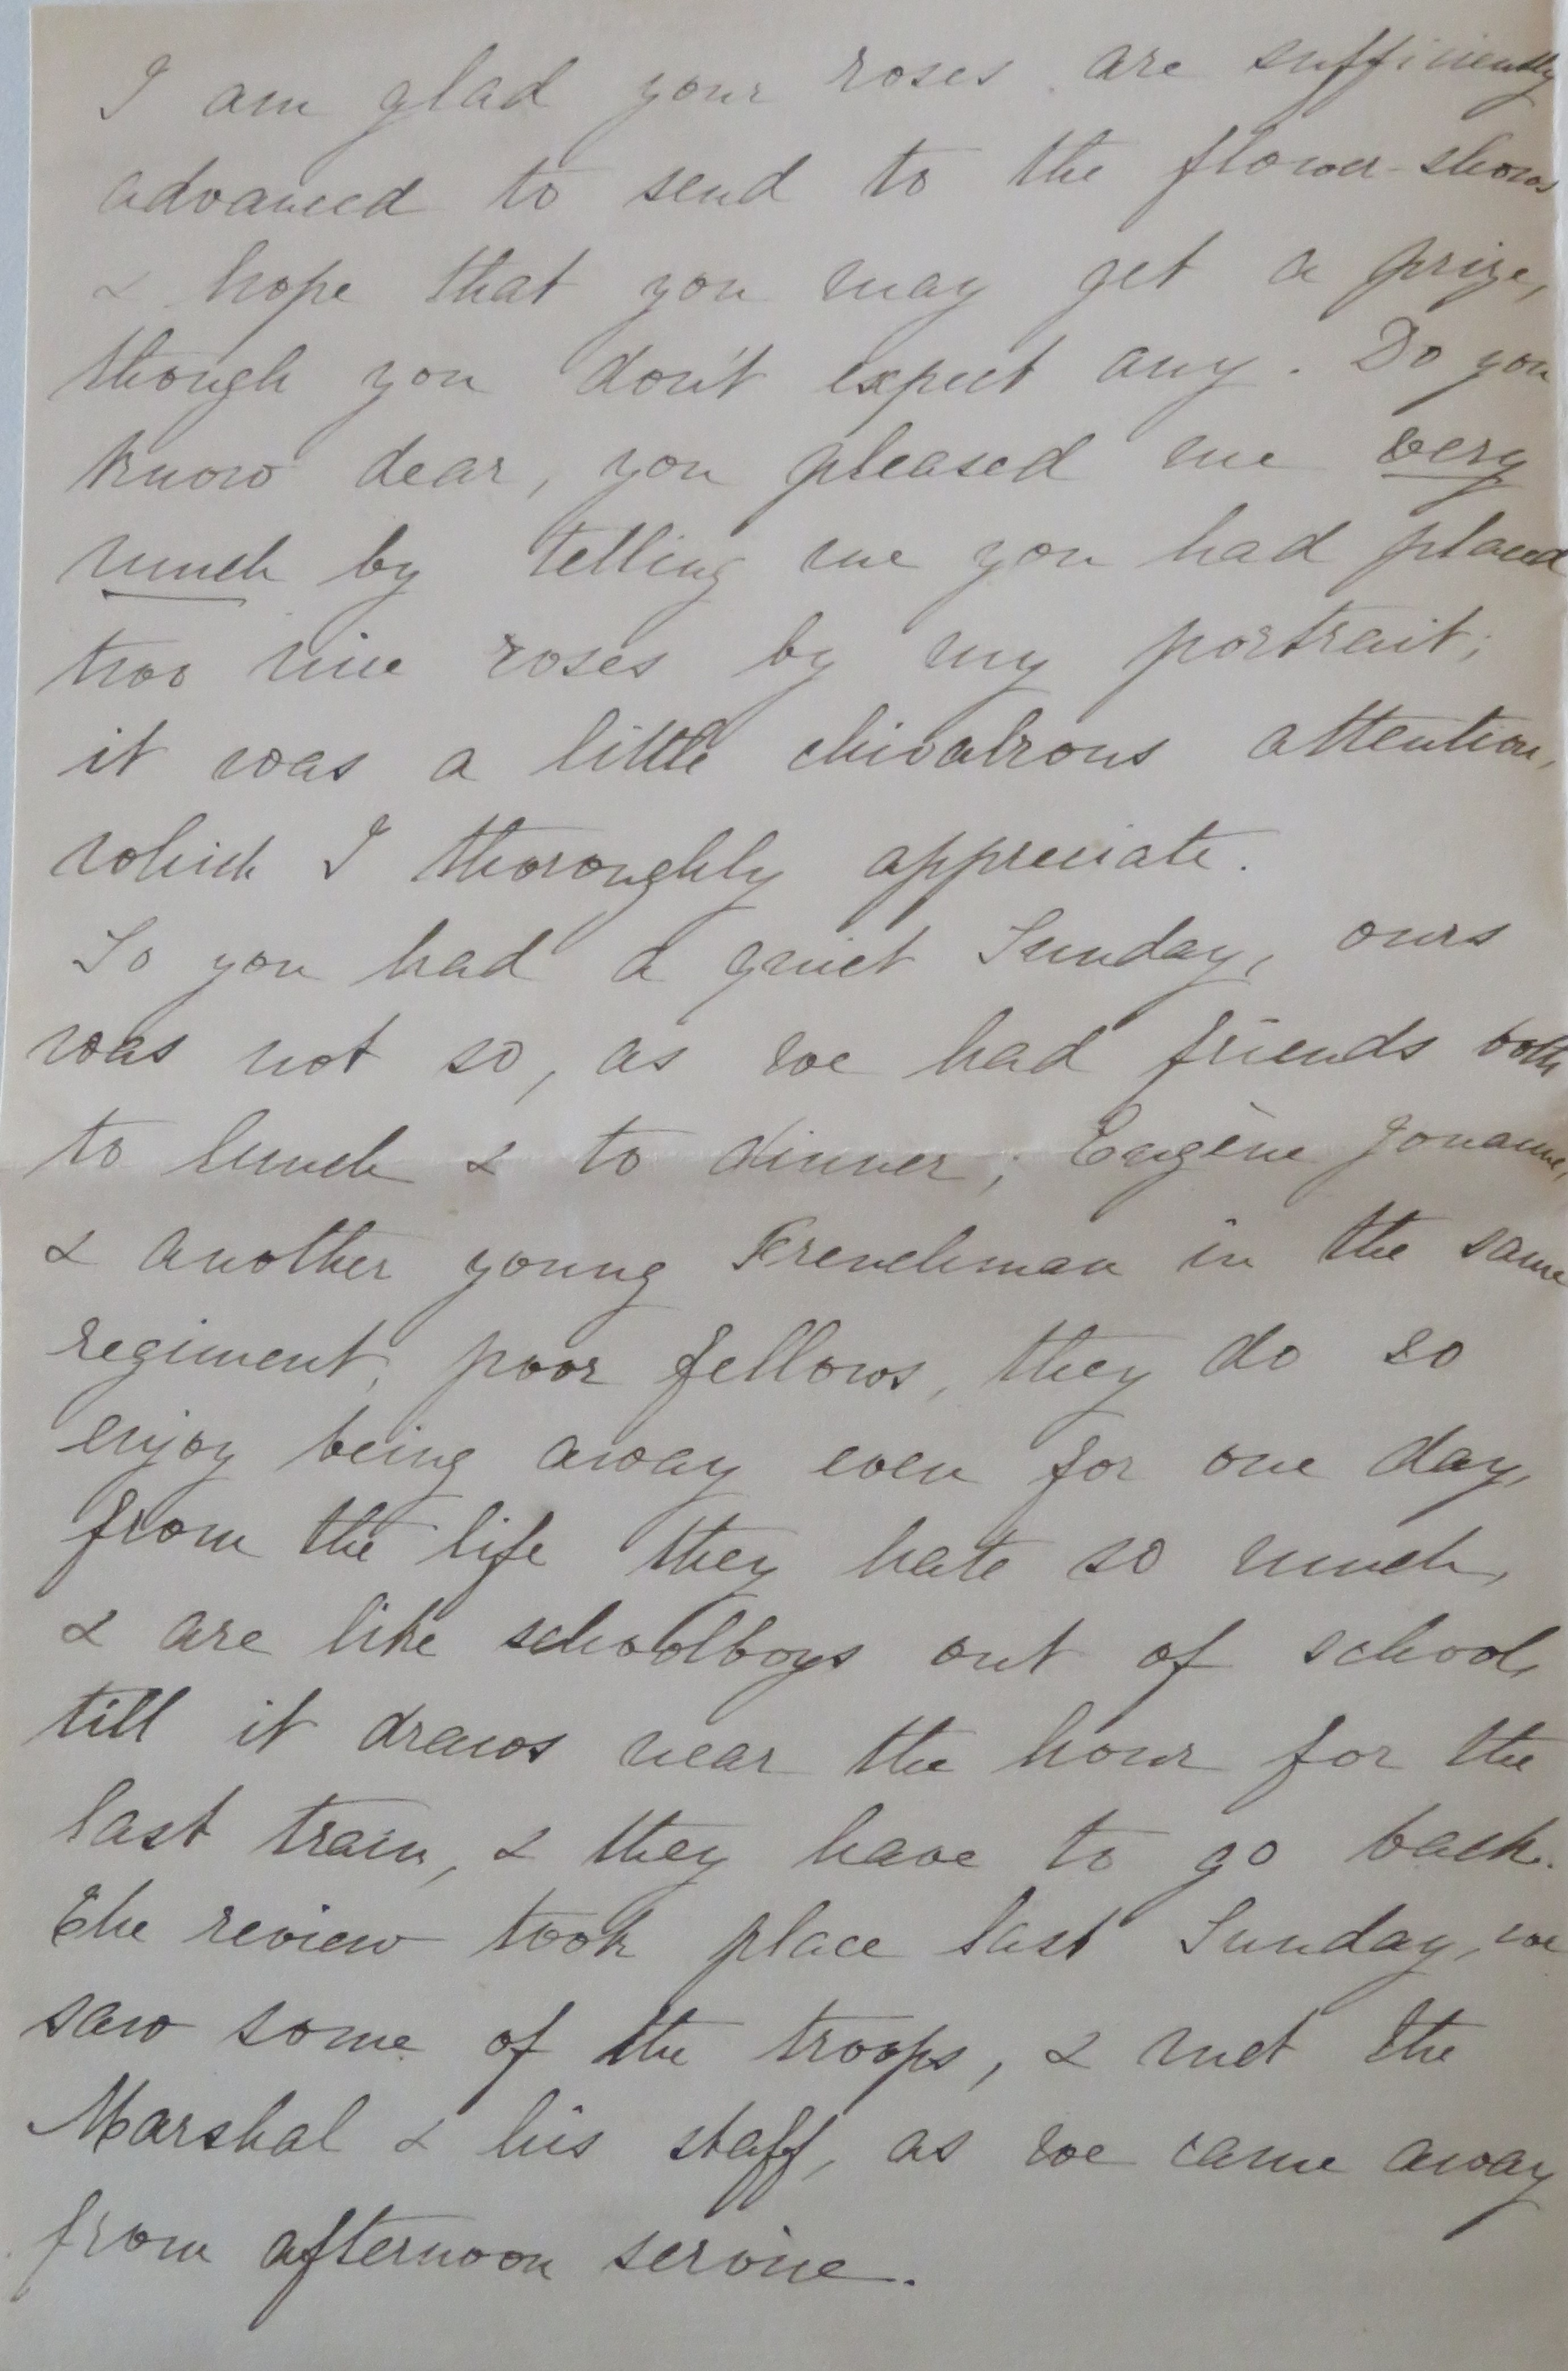 I am glad your roses are sufficiently
advanced to send to the flower-shows
& hope that you may get a prize,
though you don't expect any. Do you
know dear, you pleased me very
much by telling me you had placed
two nice roses by my portrait;
it was a little chivalrous attention,
which I thoroughly appreciate.
So you had a quiet Sunday, ours
was not so, as we had friends both
to lunch & to dinner; Eugène
& another young Frenchman in the same
regiment, poor fellows, they do so
enjoy being away even for one day,
from the life they hate so much,
& are like schoolboys out of school,
till it draws near the hour for the
last train, & they have to go back.
The review took place last Sunday, we
saw some of the troops, & met the
Marshal & his staff, as we came away
from afternoon service.